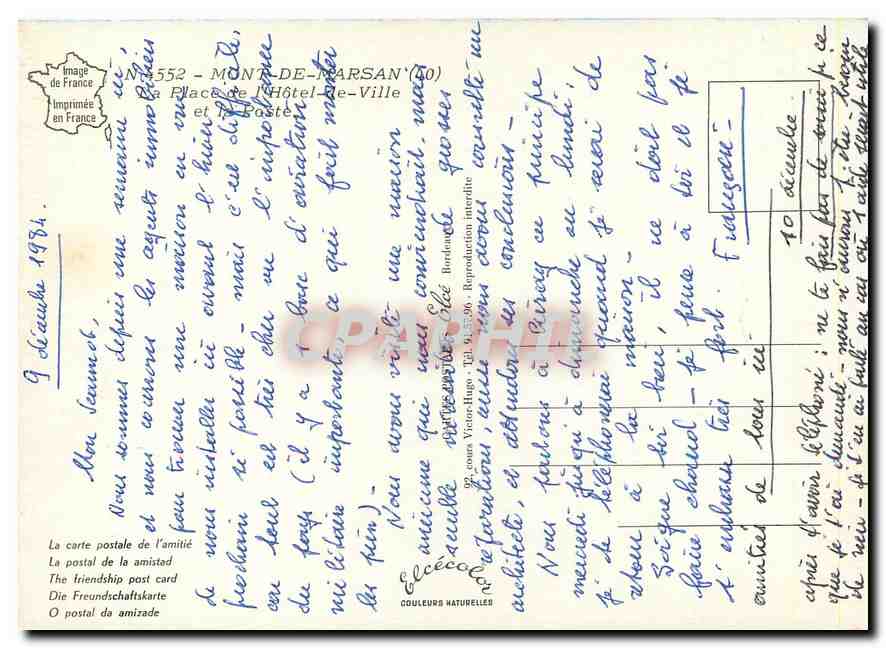 Image
de France
Imprimée
en France
N. 4552 - MONT-DE-MARSAN (40)
La Place de l'Hôtel-de-Ville
et la Poste
9 décembre 1984.
Mon Seumot,
Nous sommes depuis une semaine ici,
et nous courons les agents immobiliers
pour trouver une maison en vue
de nous installer ici avant l'hiver
prochain si possible - mais c'est difficile,
car tout est très cher vu l'importance
du pays (il y a 1 base d'aviation
militaire importante, ce qui fait monter
les prix) -
Nous avons visité une maison
ancienne qui nous conviendrait, mais
semble nécessiter de grosses
réparations, aussi nous avons consulté un
architecte, et attendons ses conclusions -
Nous partons à en principe
mercredi jusqu'à dimanche ou lundi,
je te téléphonerai quand je serai de
retour à la maison -
Soigne toi bien, il ne doit pas
faire chaud - je pense à toi et je
t'embrasse très fort. Françoise -
amitiés de tous ici
10 décembre.
après t'avoir téléphoné : ne te fais pas de souci pr ce
que je t'ai demandé - nous n'avons pas besoin
de rien - je t'en ai parlé au cas où l'aide serait utile
CARTES POSTALES Elcé Bordeaux
92, cours Victor-Hugo - Tél. 91.57.96 - Reproduction interdite
La carte postale de l'amitié
La postal de la amistad
The friendship post card
Die Freundschaftskarte
O postal da amizade
Elcécolor
COULEURS NATURELLES
CPARPHIL